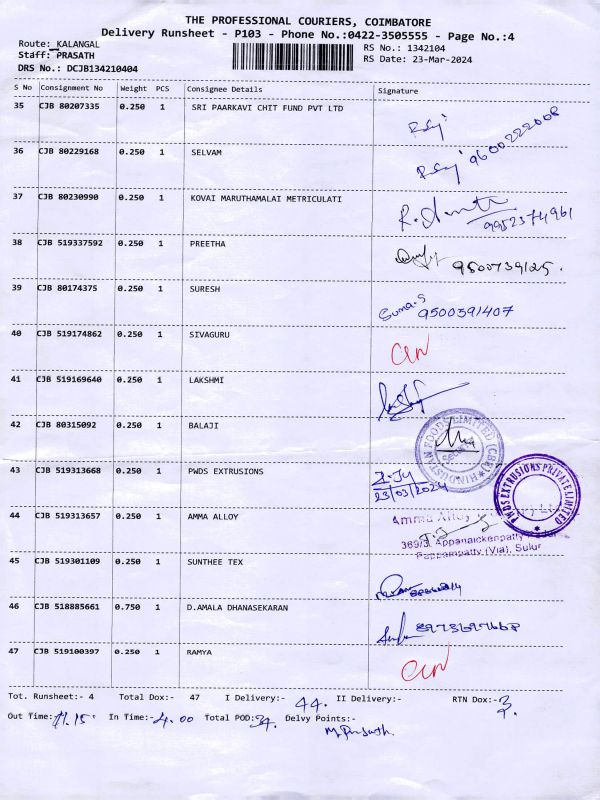 THE PROFESSIONAL COURIERS, COIMBATORE
Delivery Runsheet - P103 - Phone No.:0422-3505555 - Page No.:4
Route: KALANGAL
RS No.: 1342104
Staff: PRASATH
RS Date: 23-Mar-2024
DRS No.: DCJB134210404
S No Consignment No Weight PCS Consignee Details Signature
35 CJB 80207335 0.250 1 SRI PAARKAVI CHIT FUND PVT LTD
36 CJB 80229168 0.250 1 SELVAM 9600222008
37 CJB 80230990 0.250 1 KOVAI MARUTHAMALAI METRICULATI
9952374961
38 CJB 519337592 0.250 1 PREETHA
9500739125.
39 CJB 80174375 0.250 1 SURESH
Suma.S 9500391407
40 CJB 519174862 0.250 1 SIVAGURU
41 CJB 519169640 0.250 1 LAKSHMI
42 CJB 80315092 0.250 1 BALAJI
HINDUSTAN FOODS LIMITED (CBE)
43 CJB 519313668 0.250 1 PWDS EXTRUSIONS
23/03/2024
PWDS EXTRUSIONS PRIVATE LIMITED
44 CJB 519313657 0.250 1 AMMA ALLOY
Amma Alloy
369/3, Appanaickenpatty
Pappampatty (Via), Sulur
45 CJB 519301109 0.250 1 SUNTHEE TEX
46 CJB 518885661 0.750 1 D.AMALA DHANASEKARAN
47 CJB 519100397 0.250 1 RAMYA
Tot. Runsheet:- 4 Total Dox:- 47 I Delivery:- 44. II Delivery:- RTN Dox:- 3.
Out Time: 11.15 In Time:- 4.00 Total POD: 34. Delvy Points:-
M. Prasath